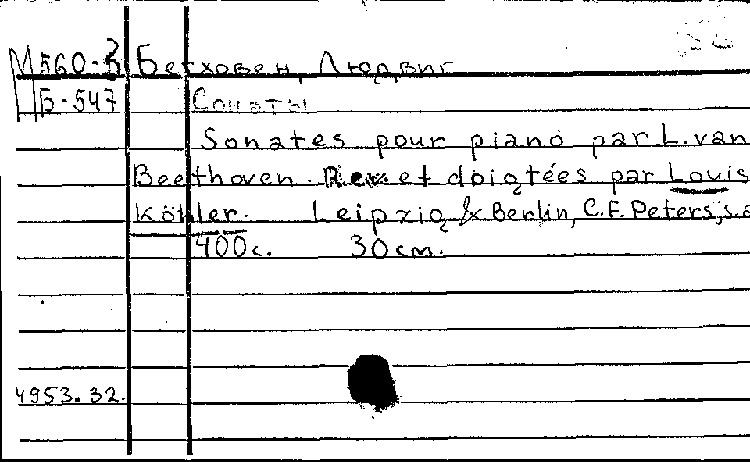 М560-3 Бетховен, Людвиг
Б-547 Сонаты
Sonates pour piano par L. van
Beethoven. Rev. et doigtées par Louis
Köhler. Leipzig & Berlin, C.F. Peters, s.a
400 с. 30 cm.
4953.32.